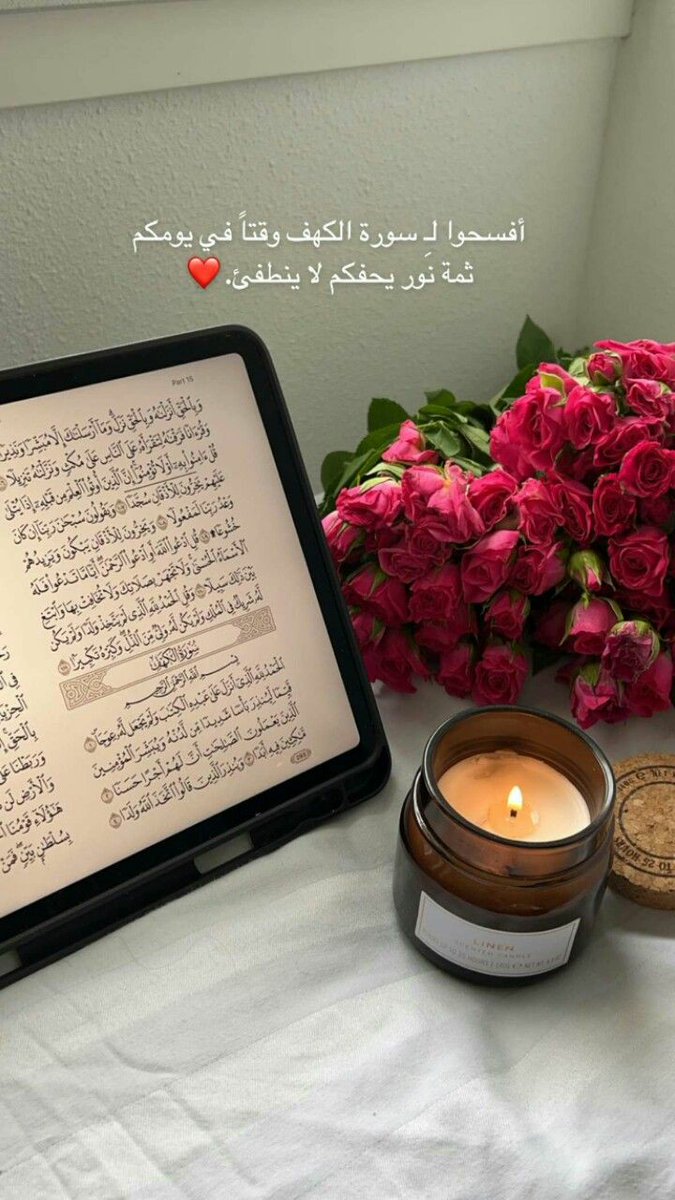 أفسحوا لـِ سورة الكهف وقتاً في يومكم
ثمة نَور يحفكم لا ينطفئ. ❤️
Part 15
وَبِالْحَقِّ أَنزَلْنَٰهُ وَبِالْحَقِّ نَزَلَ وَمَا أَرْسَلْنَٰكَ إِلَّا مُبَشِّرًا وَنَذِيرًا
وَقُرْءَانًا فَرَقْنَٰهُ لِتَقْرَأَهُ عَلَى النَّاسِ عَلَىٰ مُكْثٍ وَنَزَّلْنَٰهُ تَنزِيلًا
قُلْ ءَامِنُوا بِهِ أَوْ لَا تُؤْمِنُوا إِنَّ الَّذِينَ أُوتُوا الْعِلْمَ مِن قَبْلِهِ إِذَا يُتْلَىٰ
عَلَيْهِمْ يَخِرُّونَ لِلْأَذْقَانِ سُجَّدًا وَيَقُولُونَ سُبْحَٰنَ رَبِّنَا إِن كَانَ
وَعْدُ رَبِّنَا لَمَفْعُولًا وَيَخِرُّونَ لِلْأَذْقَانِ يَبْكُونَ وَيَزِيدُهُمْ
خُشُوعًا قُلِ ادْعُوا اللَّهَ أَوِ ادْعُوا الرَّحْمَٰنَ أَيًّا مَّا تَدْعُوا فَلَهُ
الْأَسْمَاءُ الْحُسْنَىٰ وَلَا تَجْهَرْ بِصَلَاتِكَ وَلَا تُخَافِتْ بِهَا وَابْتَغِ
بَيْنَ ذَٰلِكَ سَبِيلًا وَقُلِ الْحَمْدُ لِلَّهِ الَّذِي لَمْ يَتَّخِذْ وَلَدًا وَلَمْ يَكُن
لَّهُ شَرِيكٌ فِي الْمُلْكِ وَلَمْ يَكُن لَّهُ وَلِيٌّ مِّنَ الذُّلِّ وَكَبِّرْهُ تَكْبِيرًا
سُورَةُ الكَهْفِ
بِسْمِ اللَّهِ الرَّحْمَٰنِ الرَّحِيمِ
الْحَمْدُ لِلَّهِ الَّذِي أَنزَلَ عَلَىٰ عَبْدِهِ الْكِتَٰبَ وَلَمْ يَجْعَل لَّهُ عِوَجًا
قَيِّمًا لِّيُنذِرَ بَأْسًا شَدِيدًا مِّن لَّدُنْهُ وَيُبَشِّرَ الْمُؤْمِنِينَ
الَّذِينَ يَعْمَلُونَ الصَّٰلِحَٰتِ أَنَّ لَهُمْ أَجْرًا حَسَنًا
مَّٰكِثِينَ فِيهِ أَبَدًا وَيُنذِرَ الَّذِينَ قَالُوا اتَّخَذَ اللَّهُ وَلَدًا
293
LINEN
SCENTED CANDLE